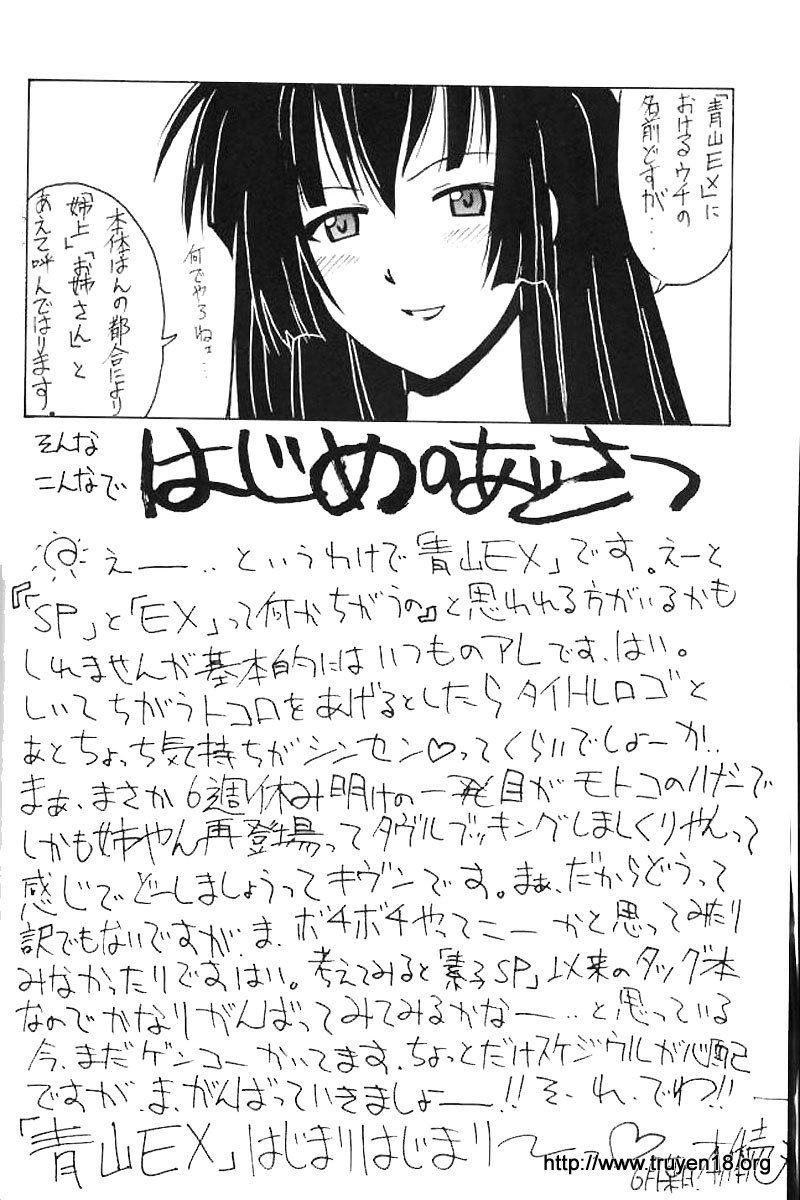 「青山EX」に
おけるウチの
名前どすが…
何でやろねェ…
本体はんの都合により
姉上」「お姉さん」と
あえて呼んではります。
そんな
こんなで
はじめのあいさつ
えー… というわけで「青山EX」です。えーと
『「SP」と「EX」って何かちがうの』と思われる方がいるかも
しれませんが基本的にはいつものアレです、はい。
しいてちがうトコロをあげるとしたらタイトルロゴと
あとちょっち気持ちがシンセン♡ってくらいでしょーか..
まぁ、まさか6週休み明けの一発目がモトコのハダーで
しかも姉やん再登場ってダヴルブッキングしましくりやんって
感じでどーしましょうってキヴンです。まぁ、だからどうって
訳でもないですが、ま、ボチボチやってこーかと思ってみたり
みなかったりですはい。考えてみると「素子SP」以来のタッグ本
なのでかなりがんばってみてみるかなー…と思っている
今、まだゲンコーかいてます、ちょっとだけスケジウルが心配
ですが、ま、がんばっていきましょー!! そ、れ、でわ!!
「青山EX」はじまりはじまり〜 ♡
http://www.truyen18.org